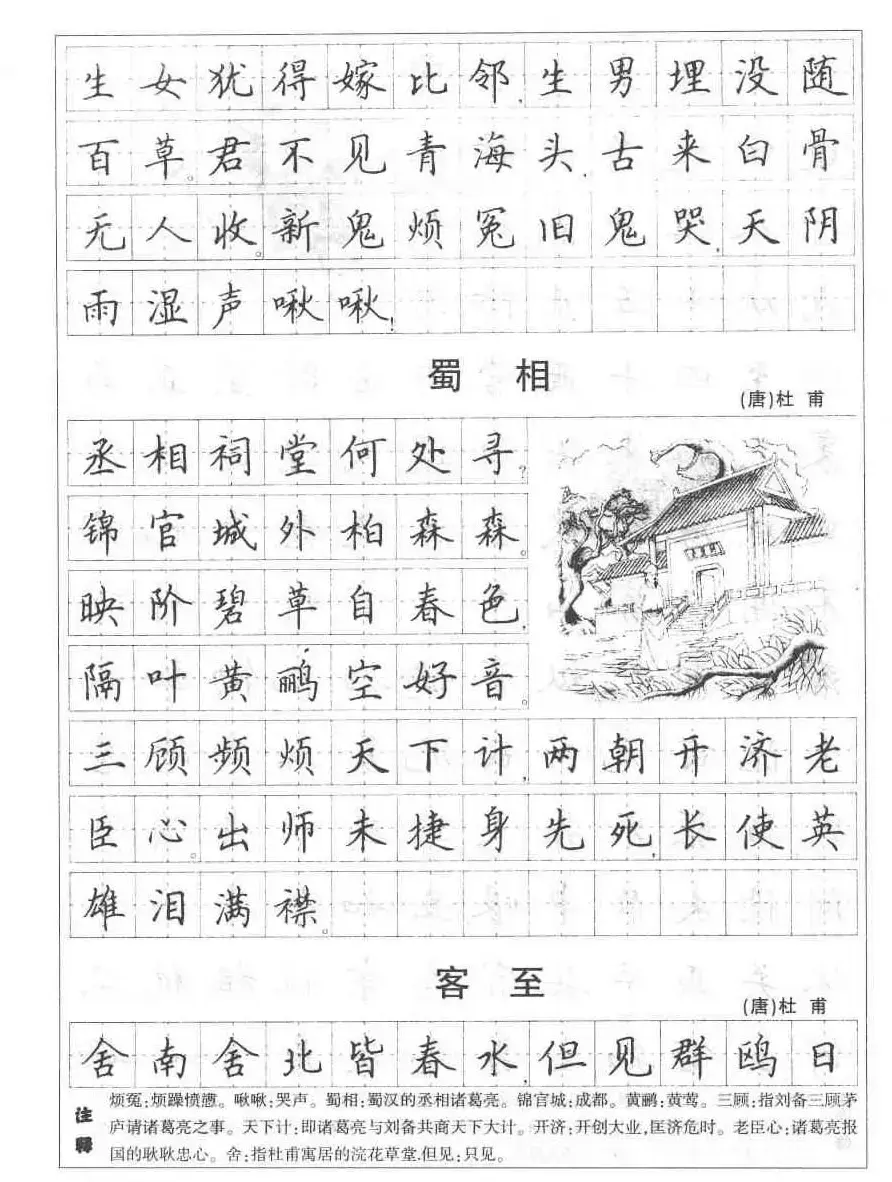 生女犹得嫁比邻,生男埋没随
百草。君不见青海头,古来白骨
无人收。新鬼烦冤旧鬼哭,天阴
雨湿声啾啾!
蜀 相
(唐)杜 甫
丞相祠堂何处寻?
锦官城外柏森森。
映阶碧草自春色,
隔叶黄鹂空好音。
三顾频烦天下计,两朝开济老
臣心。出师未捷身先死,长使英
雄泪满襟。
客 至
(唐)杜 甫
舍南舍北皆春水,但见群鸥日
注释
烦冤:烦躁愤懑。啾啾:哭声。蜀相:蜀汉的丞相诸葛亮。锦官城:成都。黄鹂:黄莺。三顾:指刘备三顾茅
庐请诸葛亮之事。天下计:即诸葛亮与刘备共商天下大计。开济:开创大业,匡济危时。老臣心:诸葛亮报
国的耿耿忠心。舍:指杜甫寓居的浣花草堂.但见:只见。